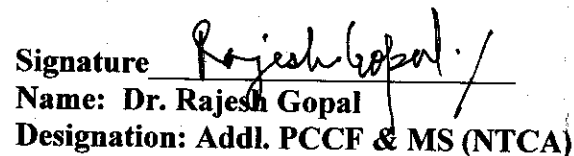 Signature Rajesh Gopal.
Name: Dr. Rajesh Gopal
Designation: Addl. PCCF & MS (NTCA)